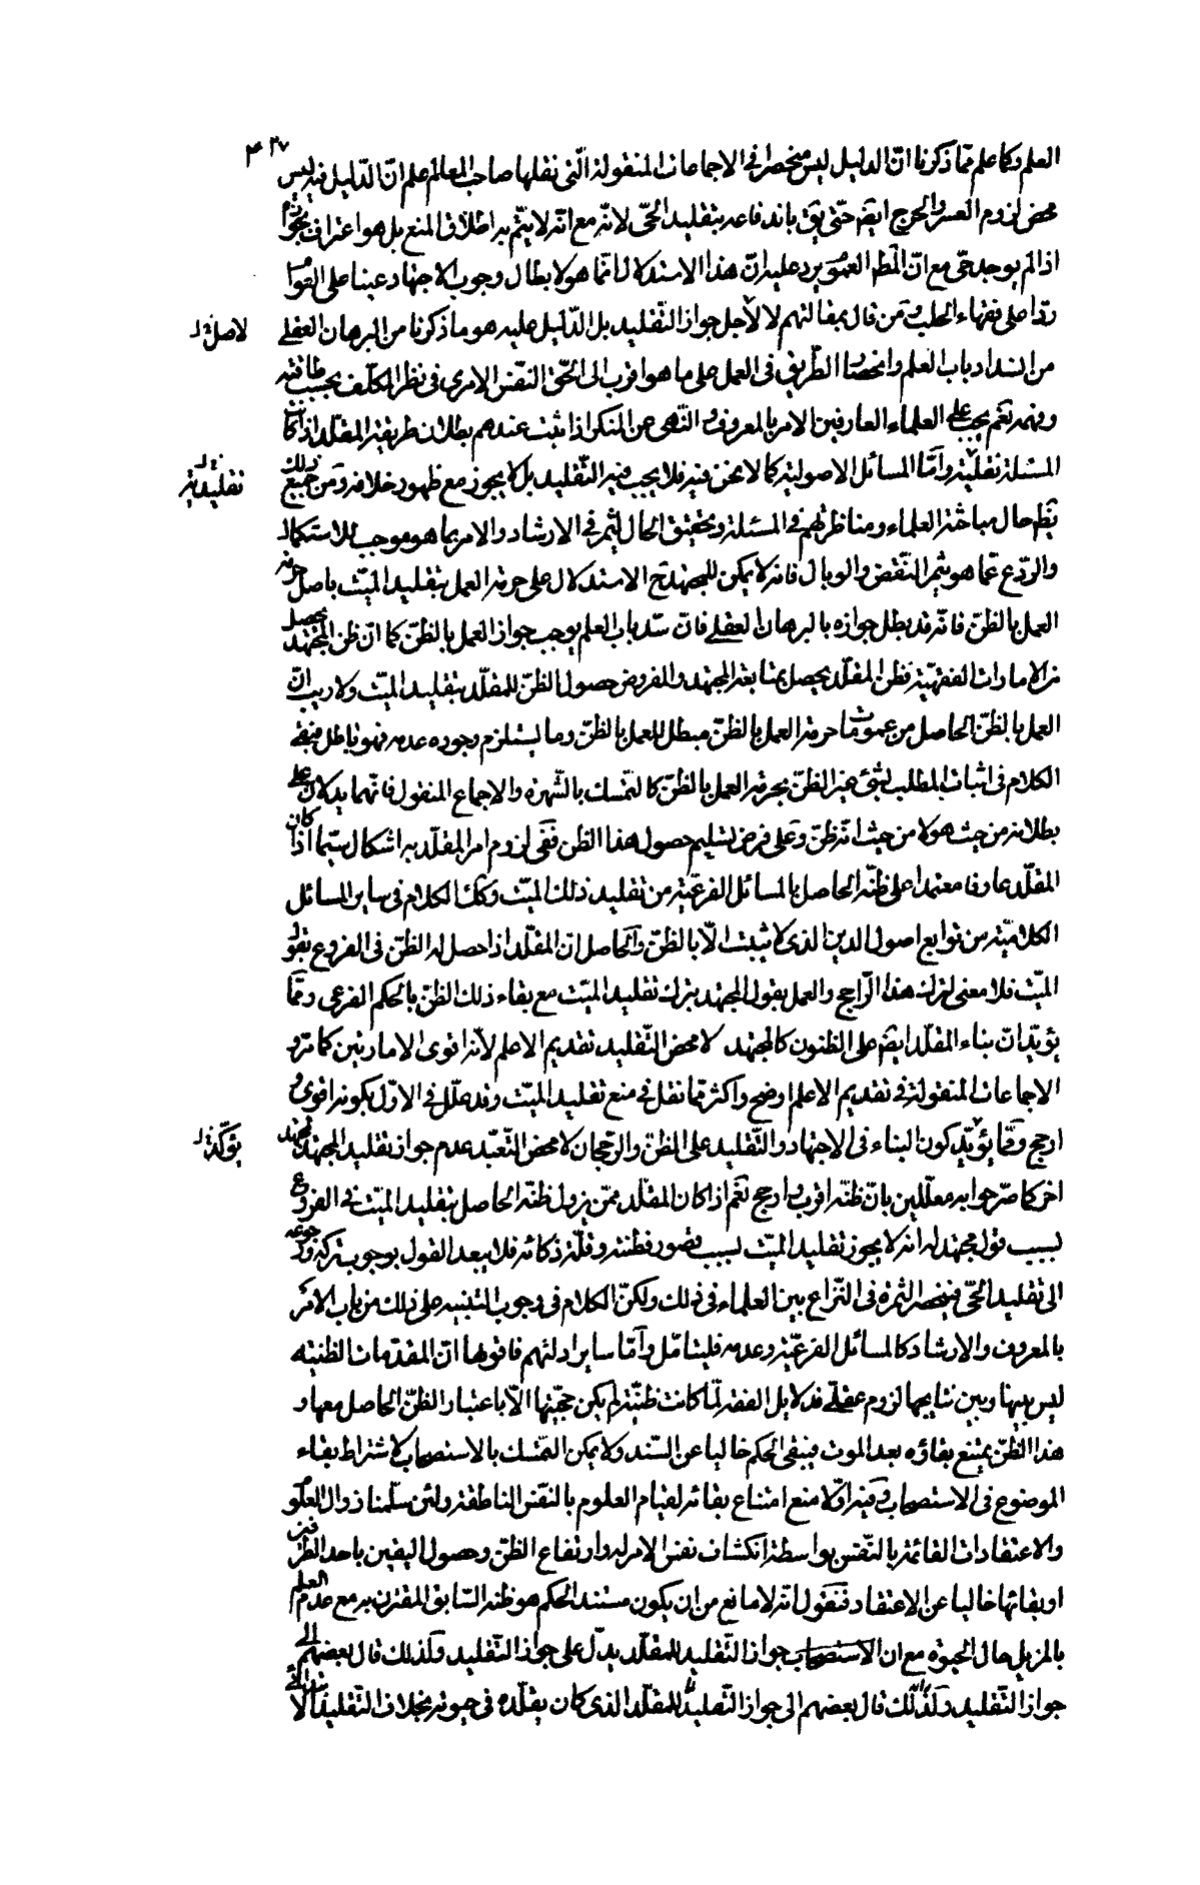 ٤٢٧
العلم وكما علم مما ذكرنا انّ الدليل ليس منحصرا فى الاجماعات المنقولة الّتى نقلها صاحب المعالم علم انّ الدّليل فيه ليس
محض لزوم العسر والحرج ايضا حتّى يق باندفاعه بتقليد الحىّ لانّه مع انّه لا يتمّ به اطلاق المنع بل هو اعتراف بجوازه
اذا لم يوجد حى مع انّ المط العموم يرد عليه انّ هذا الاستدلال انّما هو لابطال وجوب الاجتهاد عينا على القوام
ردّا على فقهاء الحلب ومن قال بمقالتهم لا لاجل جواز التّقليد بل الدّليل عليه هو ما ذكرنا من البرهان العقلى
لاصل
من انسداد باب العلم وانحصار الطّريق فى العمل على ما هو اقرب الى الحقّ النّفس الامرى فى نظر المكلّف بحسب طاقته
وفهمه نعم يجب على العلماء العارفين الامر بالمعروف والنّهى عن المنكر اذا ثبت عندهم بطلان طريقة المقلّد اذا كانت
المسئلة تقليديّة وامّا المسائل الاصولية كما لا نحن فيه فلا يجب فيه التّقليد بل لا يجوز مع ظهور خلافه ومن جميع ذلك
تقليدية
يظهر حال مباحثة العلماء ومناظرتهم فى المسئلة وتحقيق الحال ليثمر فى الارشاد والامر بما هو موجب للاستكمال
والردع عمّا هو يثمر النّقض والوبال فانه لا يمكن للمجتهد ح الاستدلال على حرمة العمل بتقليد الميّت باصل حرمة
العمل بالظنّ فانّه قد بطل جوازه بالبرهان العقلى فانّ سدّ باب العلم يوجب جواز العمل بالظنّ كما انّ ظن المجتهد يحصل
من الامارات الفقهيّة فظن المقلّد يحصل بمتابعة المجتهد والمفروض حصول الظنّ للمقلّد بتقليد الميّت ولا ريب انّ
العمل بالظنّ الحاصل من عمومات حرمة العمل بالظنّ مبطل للعمل بالظنّ وما يستلزم وجوده عدمه فهو باطل فبقى
الكلام فى اثبات المطلب بشئ غير الظنّ بحرمة العمل بالظنّ كالتمسك بالشّهرة والاجماع المنقول فانّهما يدلان على
بطلانه من حيث هو لا من حيث انّه ظنّ وعلى فرض تسليم حصول هذا الظن ففى لزوم امر المقلّد به اشكال سيّما اذا كان
المقلّد عارفا معتمدا على ظنّه الحاصل بالمسائل الفرعيّة من تقليد ذلك الميّت وكك الكلام فى ساير المسائل
الكلاميّة من توابع اصول الدين الذى لا يثبت الّا بالظنّ والحاصل ان المقلّد اذا حصل له الظنّ فى الفروع بقول
الميّت فلا معنى لترك هذا الرّاجح والعمل بقول المجتهد بترك تقليد الميّت مع بقاء ذلك الظنّ بالحكم الفرعى وممّا
يؤيّد انّ بناء المقلّد ايضا على الظنون كالمجتهد لا محض التّقليد تقديم الاعلم لانّه اقوى الامارتين كما مرّ و
الاجماعات المنقولة فى تقديم الاعلم اوضح واكثر ممّا نقل فى منع تقليد الميّت وقد علّل فى الاوّل بكونه اقوى و
ارجح وممّا يؤيّد كون البناء فى الاجتهاد والتّقليد على الظنّ والرّجحان لا محض التّعبّد عدم جواز تقليد المجتهد لمجتهد
يؤكّد
اخر كما صرّحوا به معلّلين بانّ ظنّه اقرب وارجح نعم اذا كان المقلّد ممّن يزول ظنّه الحاصل بتقليد الميّت فى الفروع
بسبب قول مجتهد له انه لا يجوز تقليد الميّت بسبب قصور فطنته وقلّة ذكائه فلا يبعد القول بوجوب تركه ورجوعه
الى تقليد الحىّ فينحصر الثمرة فى النّزاع بين العلماء فى ذلك ولكنّ الكلام فى وجوب التنبيه على ذلك من باب الامر
بالمعروف والارشاد كالمسائل الفرعيّة وعدمه فليتامّل وامّا ساير ادلتهم فاقوها ان المقدّمات الظنيّه
ليس بينها وبين نتايجها لزوم عقلى فدلايل الفقه لمّا كانت ظنّيّة لم يكن حجّيّتها الّا باعتبار الظنّ الحاصل معها و
هذا الظنّ يمتنع بقاؤه بعد الموت فيبقى الحكم خاليا عن السّند ولا يمكن التمسك بالاستصحاب لاشتراط بقاء
الموضوع فى الاستصحاب وفيه اوّلا منع امتناع بقائه لقيام العلوم بالنّفس الناطقة ولئن سلّمنا زوال العلوم
والاعتقادات القائمة بالنّفس بواسطة انكشاف نفس الامر له وارتفاع الظنّ وحصول اليقين باحد الطّرفين
او بقائها خاليا عن الاعتقاد فنقول انّه لا مانع من ان يكون مستند الحكم هو ظنه السّابق المقترن به مع عدم العلم
بالمزيل حال الحيوة مع ان الاستصحاب جواز التّقليد للمقلّد يدلّ على جواز التّقليد ولذلك قال بعضهم الى
جواز التّقليد ولذلك قال بعضهم الى جواز التّقليد للمقلّد الذى كان يقلّده فى حيوته بخلاف التّقليد الابتدائى